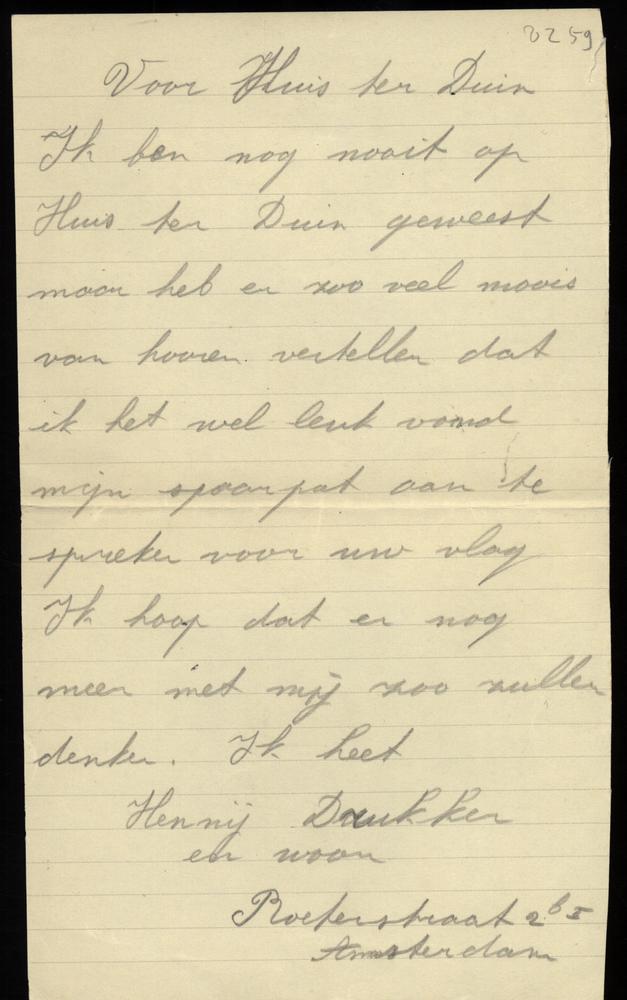 2259
Voor Huis ter Duin
Ik ben nog nooit op
Huis ter Duin geweest
maar heb er zoo veel moois
van hooren vertellen dat
ik het wel leuk vond
mijn spaarpot aan te
spreken voor uw vlag
Ik hoop dat er nog
meer met mij zoo zullen
denken. Ik heet
Hennij Drukker
en woon
Roeterstraat 2 b I
Amsterdam